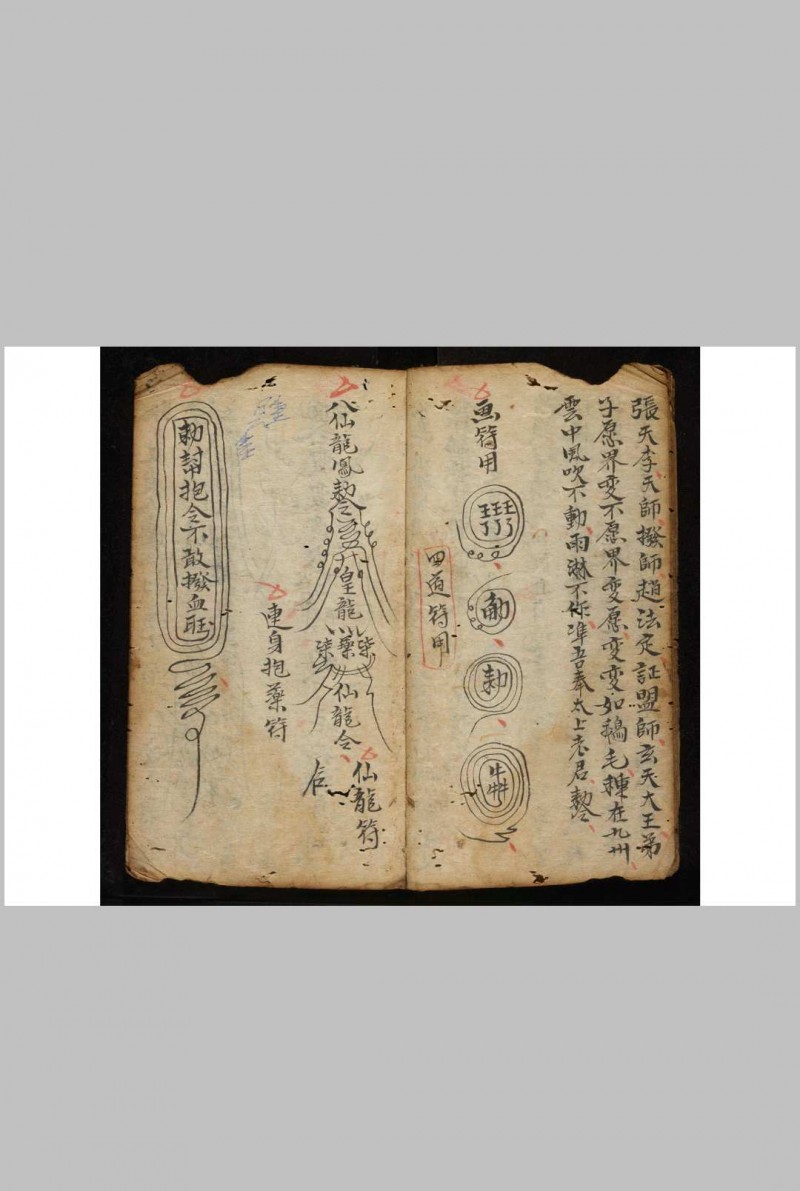 張天李天師撥師趙法定証盟師玄天大王弟
子愿界变不愿界变愿变变如鵝毛揀在九州
雲中風吹不動雨淋不作准吾奉太上老君勅令
画符用
勅
四道符用
八仙龍鳳勅令
皇龍
藥
仙龍令
仙龍符
后
連身抱藥符
勅幇抱令不敢撥血